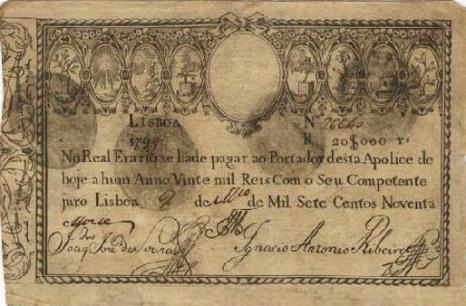 LISBOA N
1799 R 20$000 rs
No Real Erario se hade pagar ao Portador desta Apolice de
hoje a hum Anno Vinte mil Reis Com o Seu Competente
juro Lisboa de de Mil Sete Centos Noventa
e nove
Ignacio Antonio Ribeiro